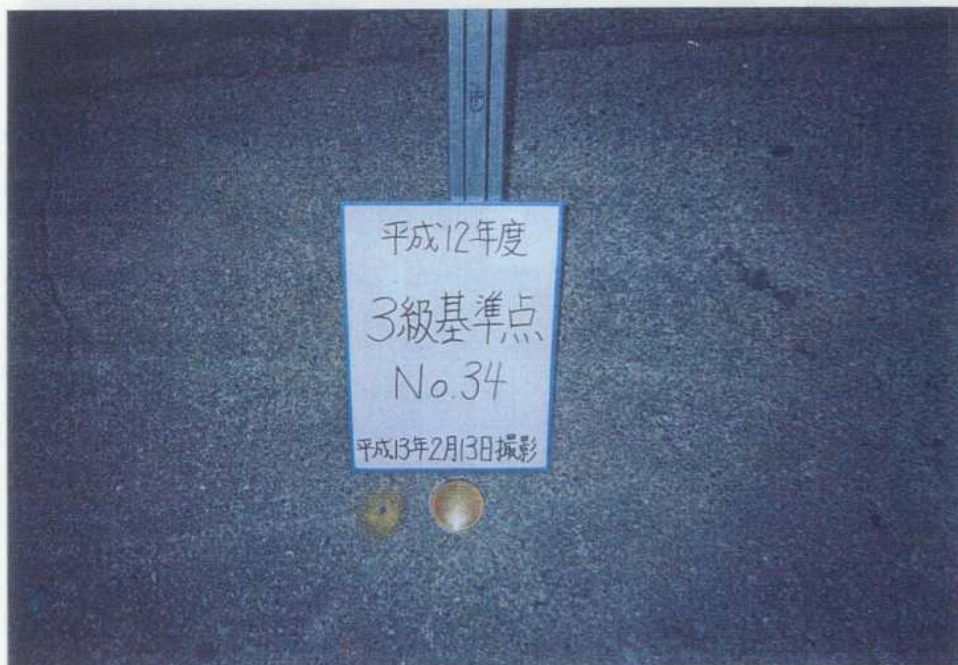 平成12年度
3級基準点
No.34
平成13年2月13日撮影